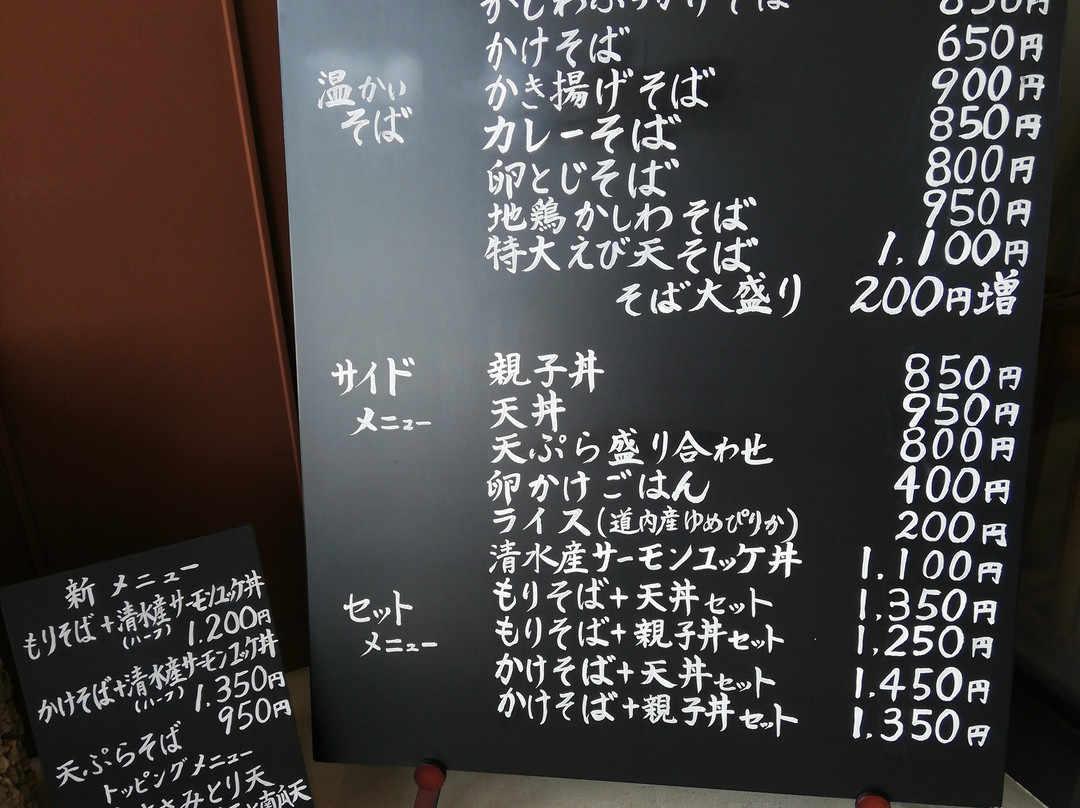 かしわぶっかけそば 850円
かけそば 650円
温かい
そば
かき揚げそば 900円
カレーそば 850円
卵とじそば 800円
地鶏かしわそば 950円
特大えび天そば 1,100円
そば大盛り 200円増
サイド
メニュー
親子丼 850円
天丼 950円
天ぷら盛り合わせ 800円
卵かけごはん 400円
ライス(道内産ゆめぴりか) 200円
清水産サーモンユッケ丼 1,100円
セット
メニュー
もりそば+天丼セット 1,350円
もりそば+親子丼セット 1,250円
かけそば+天丼セット 1,450円
かけそば+親子丼セット 1,350円
新メニュー
もりそば+清水産サーモンユッケ丼
(ハーフ) 1,200円
かけそば+清水産サーモンユッケ丼
(ハーフ) 1,350円
天ぷらそば 950円
トッピングメニュー
ささみとり天
南瓜天